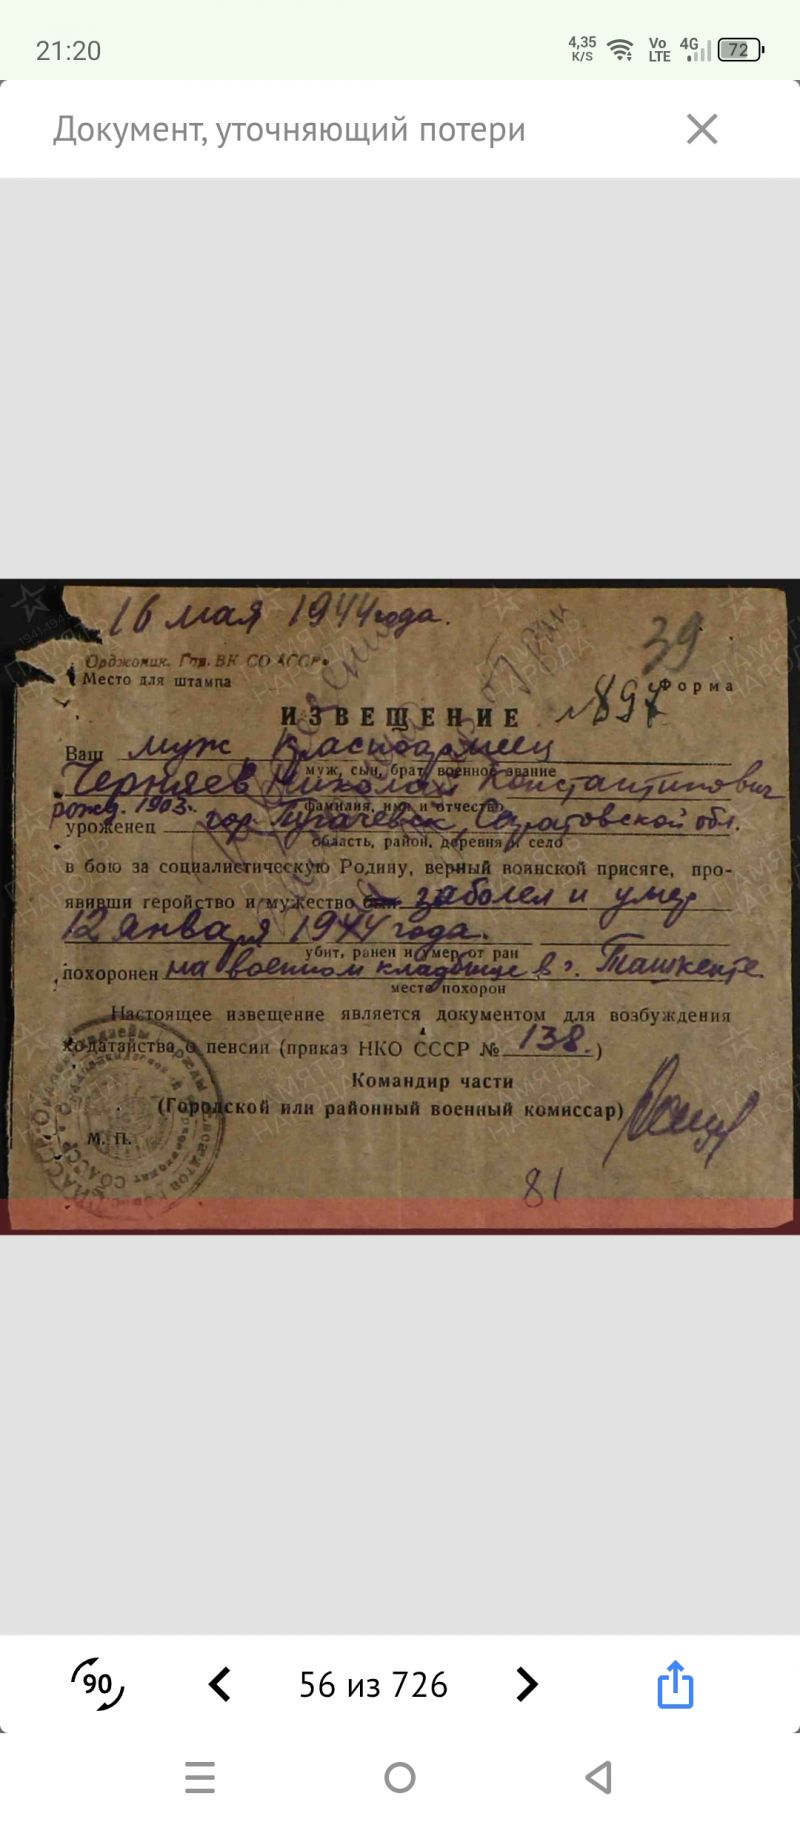 21:20
4,35 K/S
Vo LTE
4G
72
Документ, уточняющий потери
16 мая 1944 года.
39
Орджоник. Гор. ВК СО АССР
Место для штампа
Форма
ИЗВЕЩЕНИЕ
№ 897
Ваш муж, Красноармеец
муж, сын, брат, военное звание
Черняев Николай Константинович
фамилия, имя и отчество
рожд. 1903.
уроженец гор. Пугачевск, Саратовской обл.
область, район, деревня и село
в бою за социалистическую Родину, верный воинской присяге, про-
явивши геройство и мужество заболел и умер
12 января 1944 года.
убит, ранен и умер от ран
похоронен на военном кладбище в г. Ташкенте
место похорон
Настоящее извещение является документом для возбуждения
ходатайства о пенсии (приказ НКО СССР № 138.)
Командир части
(Городской или районный военный комиссар)
М. П.
81
90
56 из 726